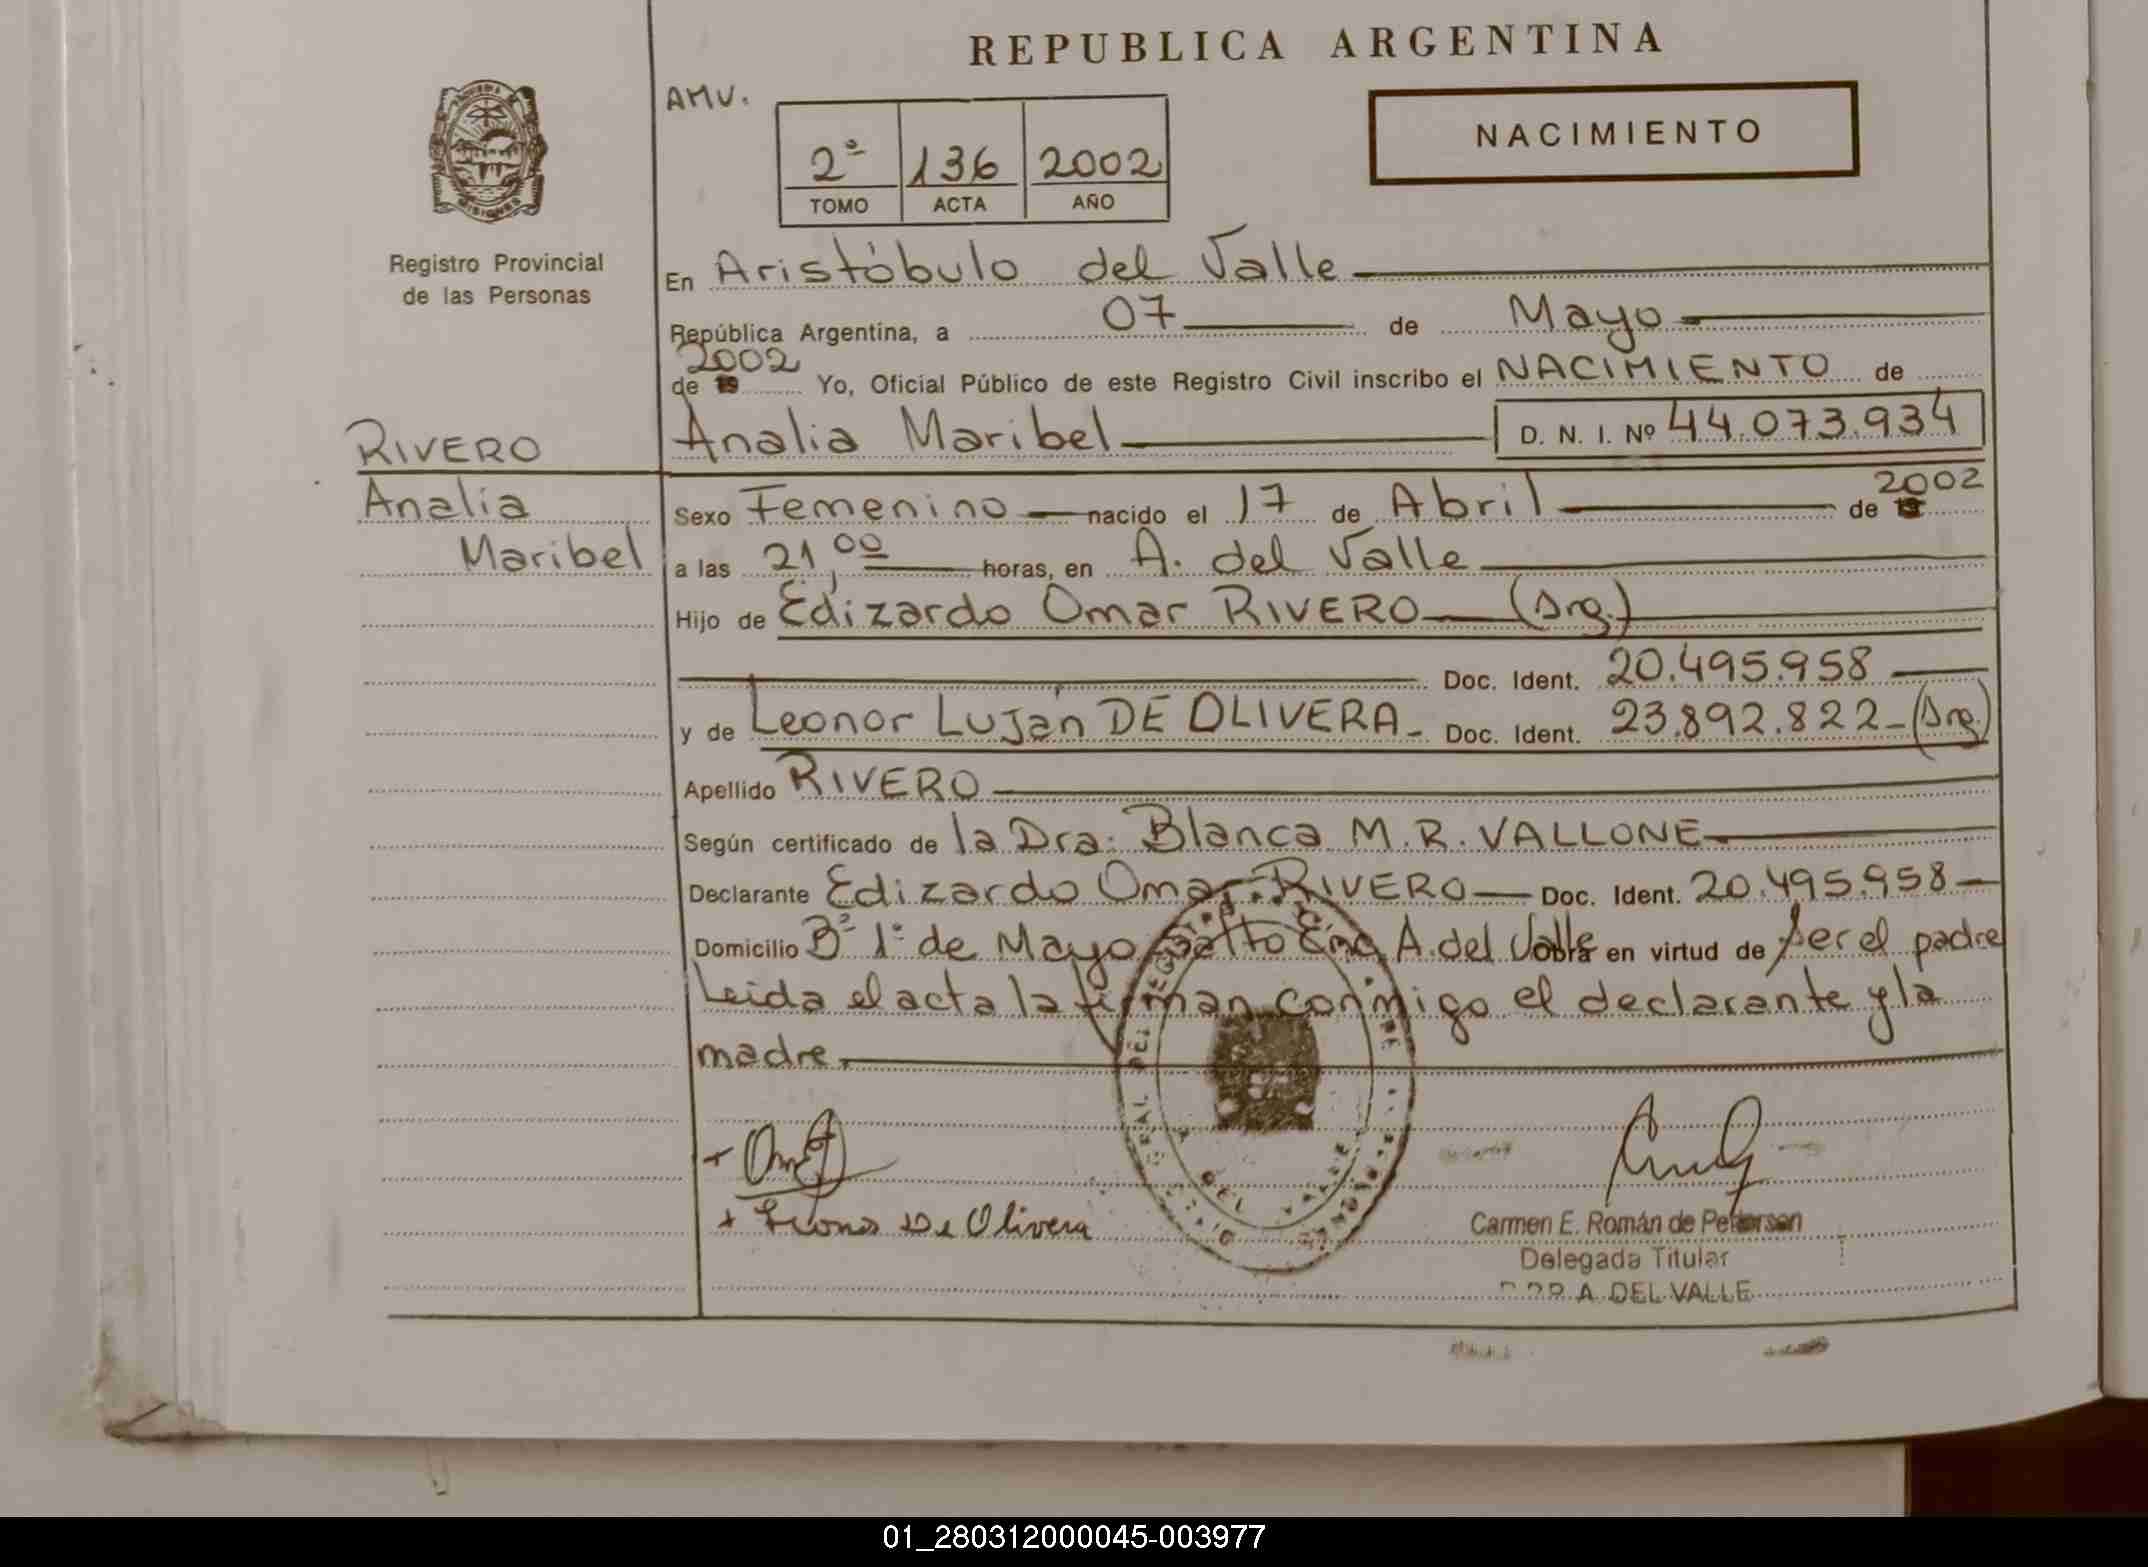 REPUBLICA ARGENTINA
AMV.
NACIMIENTO
2º 136 2002
TOMO ACTA AÑO
Registro Provincial
de las Personas
En Aristóbulo del Valle
República Argentina, a 07 de Mayo
de 2002 Yo, Oficial Público de este Registro Civil inscribo el NACIMIENTO de
Analia Maribel D. N. I. Nº 44.073.934
RIVERO
Analia
Maribel
Sexo Femenino nacido el 17 de Abril de 2002
a las 21,00 horas, en A. del Valle
Hijo de Edizardo Omar RIVERO (Arg.)
Doc. Ident. 20.495.958
y de Leonor Luján DE OLIVERA - Doc. Ident. 23.892.822 - (Arg.)
Apellido RIVERO
Según certificado de la Dra. Blanca M. R. VALLONE
Declarante Edizardo Omar RIVERO Doc. Ident. 20.495.958
Domicilio Bº 1º de Mayo Salto Enc. A. del Valle Obra en virtud de ser el padre
Leida el acta la firman conmigo el declarante y la
madre.
DEL VALLE
De Olivera
Carmen E. Román de Petterson
Delegada Titular
A. DEL VALLE
01_280312000045-003977